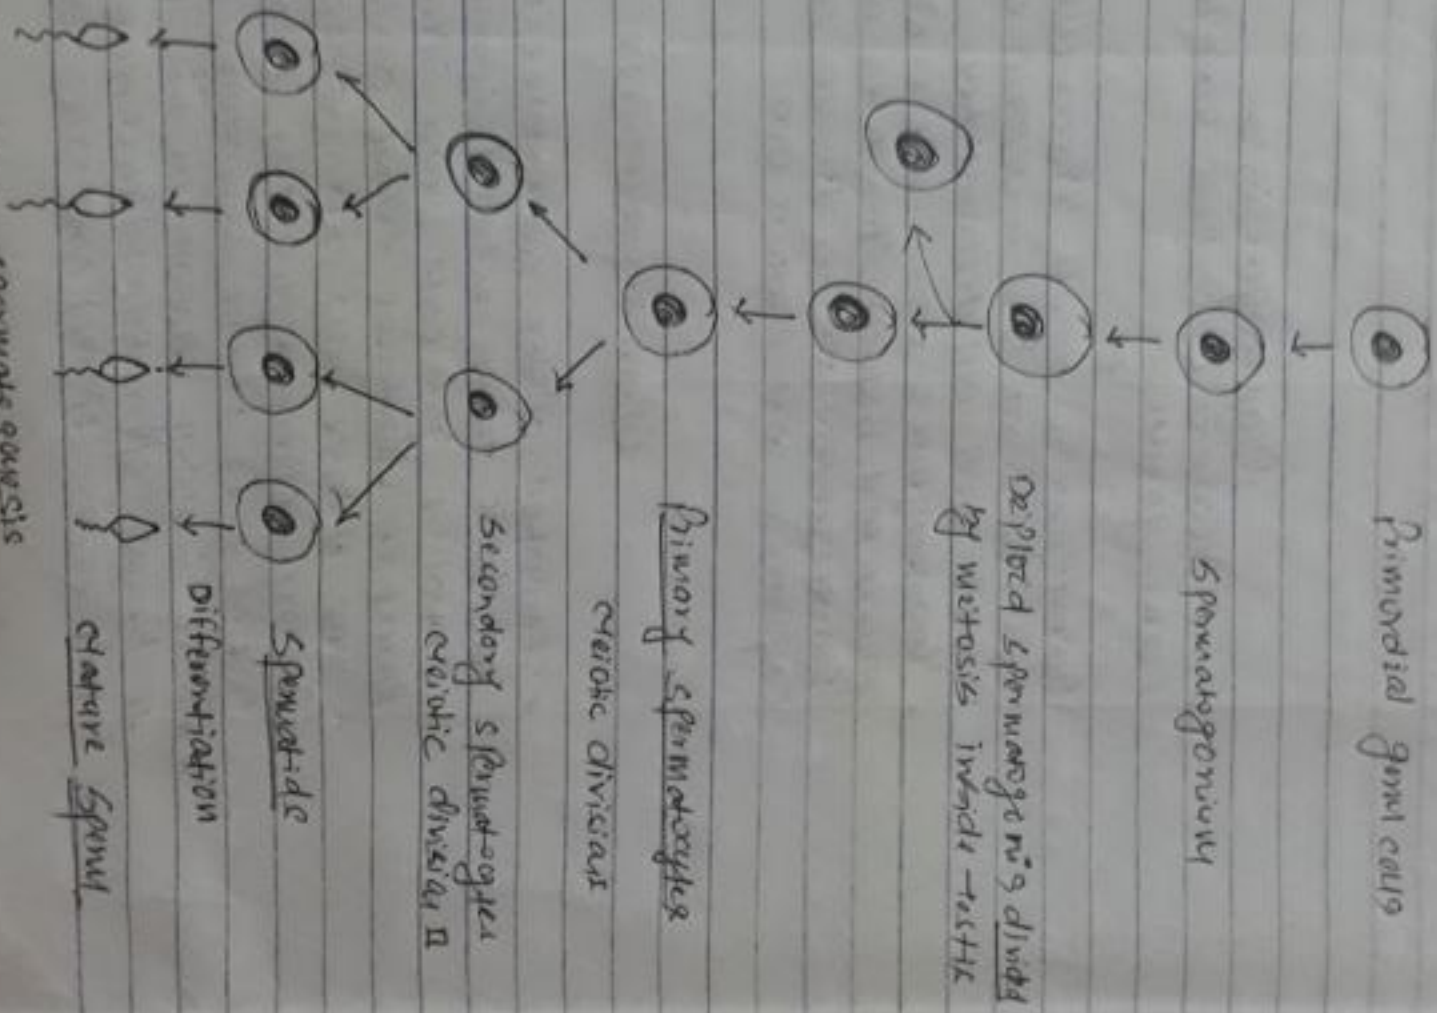 Primordial germ cells
Spermatogonium
Diploid spermatogonia divided
by mitosis inside testis
Primary spermatocytes
Meiotic divisions
Secondary spermatogtes
Meiotic division II
Spermatids
Differentiation
Mature Sperm